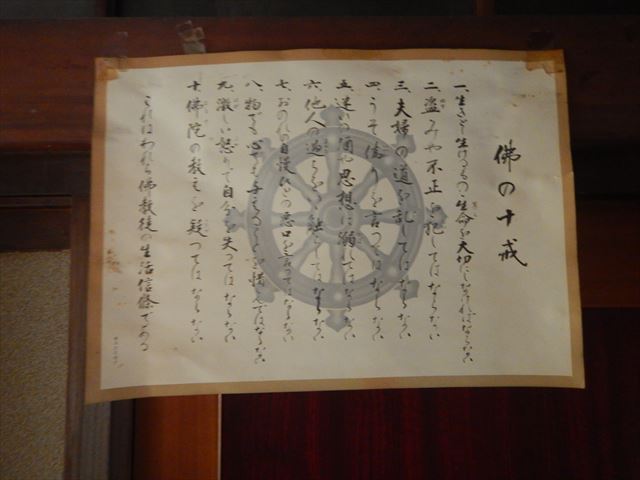 佛の十戒
一、生きとし生けるもの生命を大切にしなければならない
二、盗みや不正を犯してはならない
三、夫婦の道を乱してはならない
四、うそ偽りを言ってはならない
五、迷いの酒や思想に溺れてはならない
六、他人の過ちをいい触らしてはならない
七、おのれの自慢ひとの悪口を言ってはならない
八、物でも心でも与えることを惜しんではならない
九、激しい怒りで自分を失ってはならない
十、佛陀の教えを疑ってはならない
これはわれら佛教徒の生活信條である